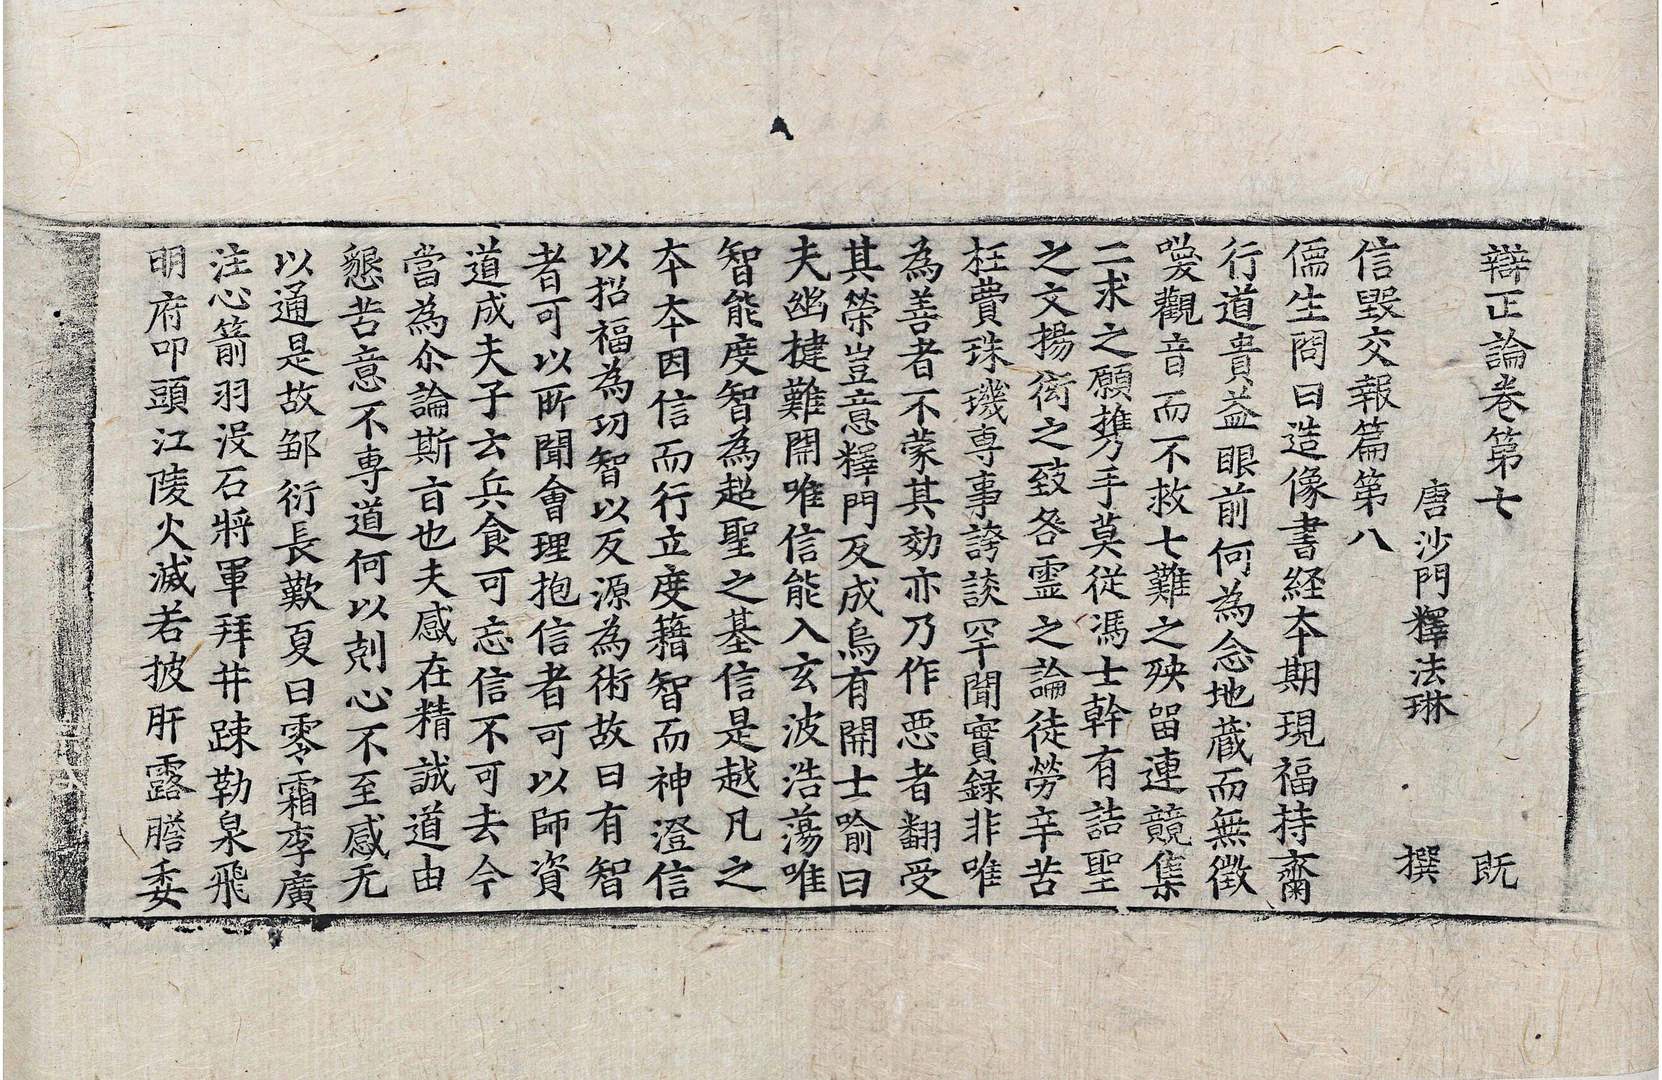 辯正論卷第七 既
唐沙門釋法琳 撰
信毀交報篇第八
儒生問曰造像書経夲期現福持齋
行道貴益眼前何為念地蔵而無徵
喚觀音而不救七難之殃留連競集
二求之願攜手莫從馮士幹有詰聖
之文揚衒之致咎霊之論徒勞辛苦
枉費珠璣専事誇談罕聞實録非唯
為善者不蒙其効亦乃作惡者翻受
其榮豈意釋門反成烏有開士喻曰
夫幽揵難開唯信能入玄波浩蕩唯
智能度智為超聖之基信是越凡之
夲夲因信而行立度籍智而神澄信
以招福為功智以反源為術故曰有智
者可以所聞會理抱信者可以師資
道成夫子云兵食可忘信不可去今
當為尒論斯盲也夫感在精誠道由
懇苦意不専道何以剋心不至感无
以通是故邹衍長歎夏曰零霜李廣
注心箭羽没石將軍拜井踈勒泉飛
明府叩頭江陵火滅若披肝露膽委